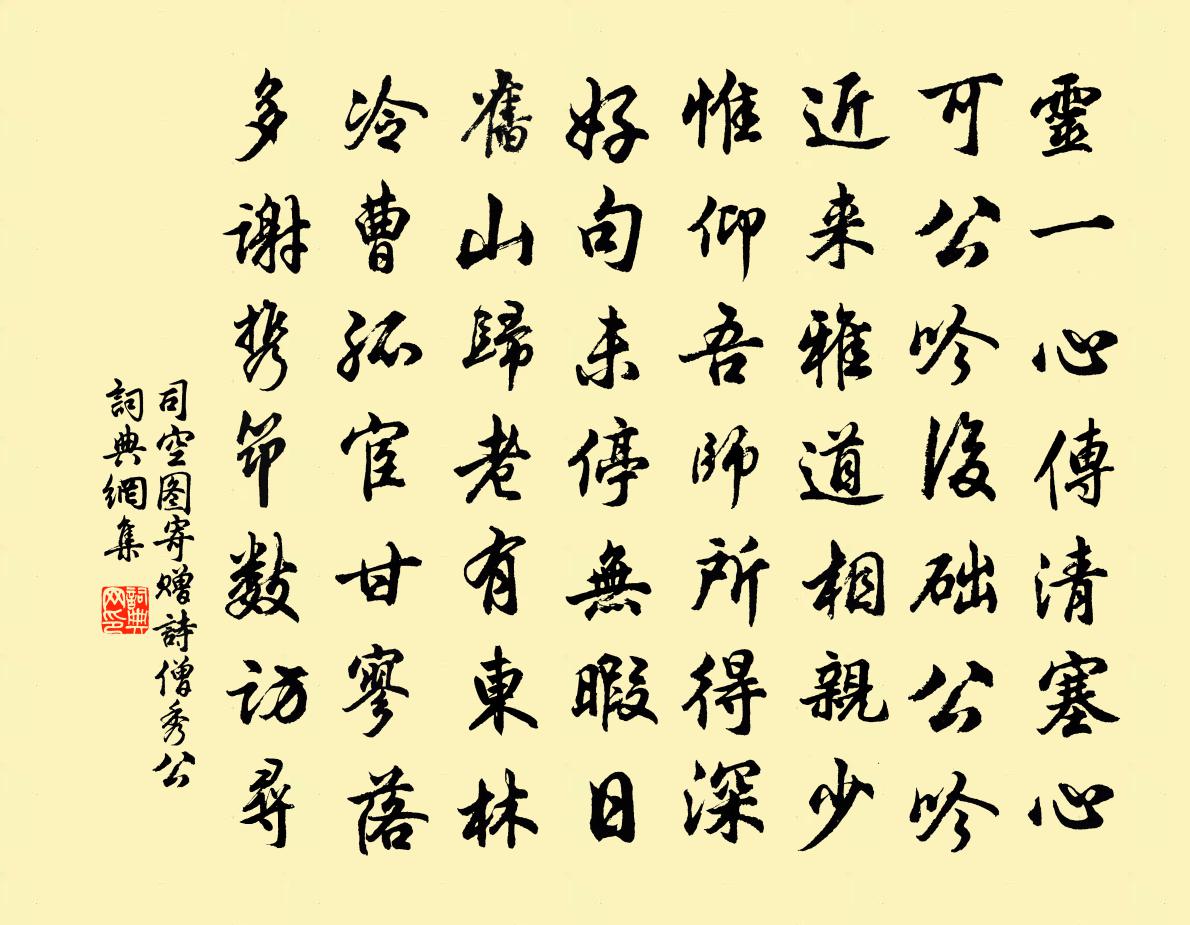 靈一心傳清塞心
可公吟後础公吟
近来雅道相親少
惟仰吾師所得深
好句未停無暇日
舊山歸老有東林
冷曹孤宦甘寥落
多謝携筇數訪尋
司空图寄赠詩僧秀公
詞典網集
詞典网印